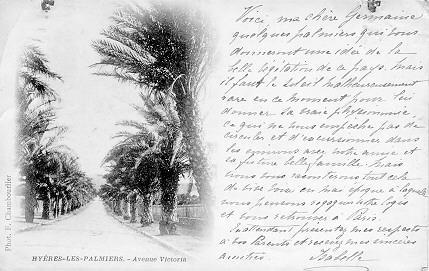 Voici, ma chère Germaine
quelques palmiers qui vous
donneront une idée de la
belle végétation de ce pays. mais
il faut le soleil malheureusement
rare en ce moment pour lui
donner la vraie physionomie
ce qui ne nous empêche pas de
circuler et d'excursionner dans
les environs avec notre amie et
sa future belle famille. Mais
nous vous montrerons tout cela
de vive voix en mai époque à laquelle
nous pensons regagner notre logis
et vous retrouver à Paris.
En attendant présentez mes respects
à vos Parents et recevez mes sincères
amitiés Isabelle
Phot. F. Chambeurlier
HYÈRES-LES-PALMIERS. - Avenue Victoria